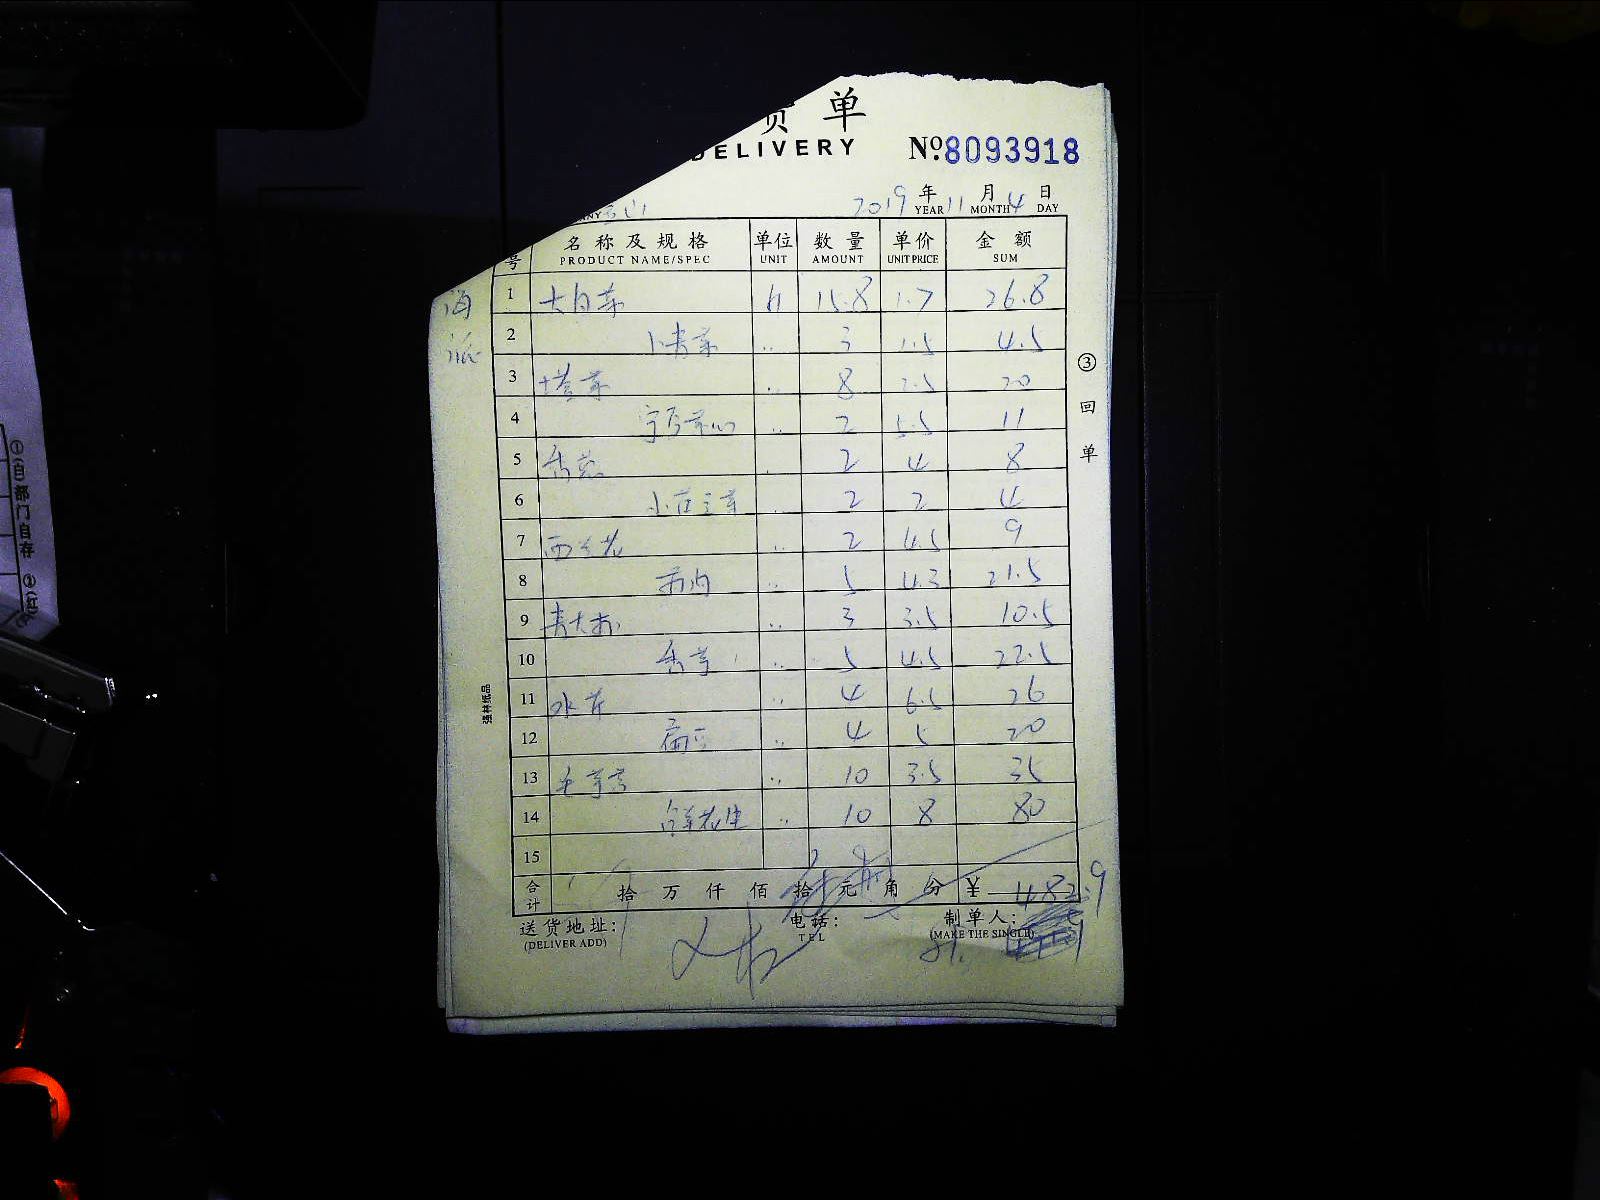 货单
DELIVERY
№8093918
2019年11月4日
YEAR MONTH DAY
号 名称及规格 单位 数量 单价 金额
PRODUCT NAME/SPEC UNIT AMOUNT UNIT PRICE SUM
1 大白菜 斤 15.8 1.7 26.8
2 卜青菜 〃 3 1.5 4.5
3 塔菜 〃 8 2.5 20
4 〃 2 5.5 11
5 香葱 2 4 8
6 2 2 4
7 西兰花 〃 2 4.5 9
8 〃 5 4.3 21.5
9 青大椒 〃 3 3.5 10.5
10 香芋 〃 5 4.5 22.5
11 水芹 〃 4 6.5 26
12 扁豆 〃 4 5 20
13 毛芋艿 〃 10 3.5 35
14 鲜花生 〃 10 8 80
15
合计 拾万仟佰拾元角分 ¥
送货地址: 电话: 制单人:
(DELIVER ADD) TEL (MAKE THE SINGLE)
③回单
强林纸品
①(白)部门自存 ②(红)